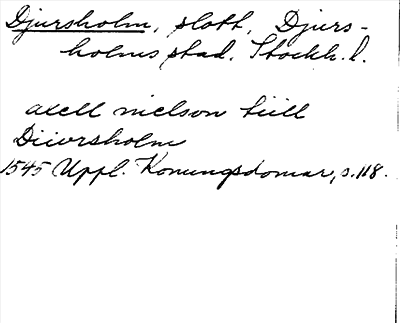 Djursholm, slott, Djurs-
holms stad, Stockh. l.
axell nielson tiill
Diiwrsholm
1545 Uppl. Konungsdomar, s. 118.